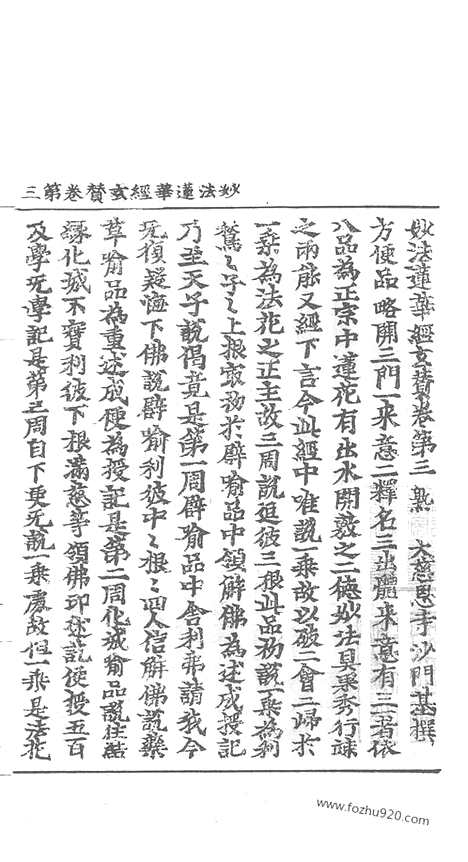 妙法蓮華經玄賛卷第三
妙法蓮華經玄賛卷第三 大慈恩寺沙門基撰
方便品略開三門一来意二釋名三出體来意有三一者依
八品為正宗中蓮花有出水開敷之二德妙法具秉秀行疎
之兩能又經下言今此經中唯說一乘故以破二會二歸於
一乘為法花之正主故三周說逗彼三根此品初說一乘為利
鷲子之上根取初於辟喻品中領解佛為述成授記
乃至天子說偈竟是第一周辟喻品中舍利弗請我今
无復疑悔下佛說辟喻利彼中之根根四人信解佛說藥
草喻品為重述成便為授記是第二周化城喻品說往結
緣化城不實利彼下根滿慈等領佛印述記使授五百
及學无學記是第三周自下更无說一乘處故但一乘是法花
www.fozhu920.com